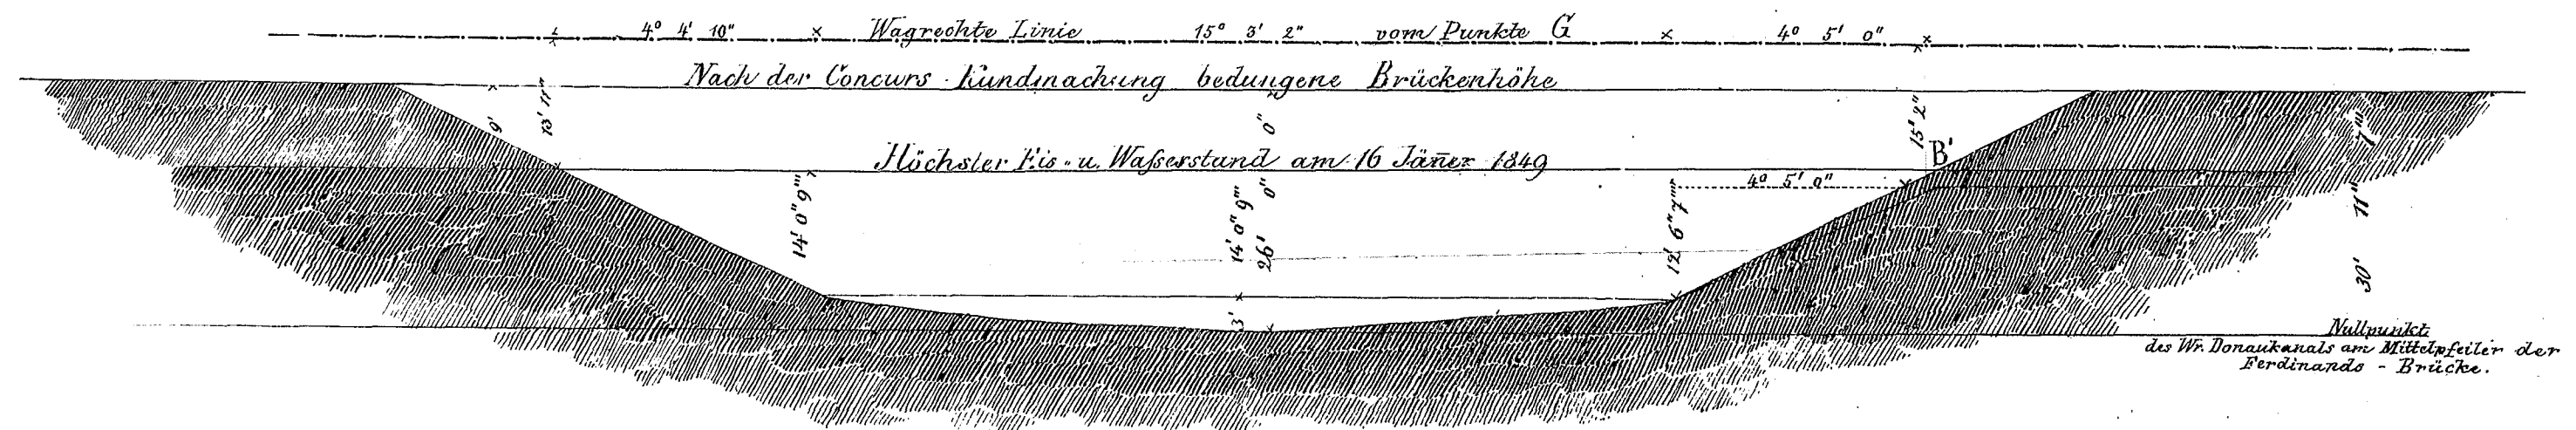 4° 4' 10" Wagrechte Linie 15° 3' 2" vom Punkte G 4° 5' 0"
Nach der Concurs-Kundmachung bedungene Brückenhöhe
9'
13' 11"
0"
15' 2"
7'''
Höchster Eis- u. Waſserstand am 16 Jän̄er 1849
B'
14' 0" 9'''
14' 0" 9'''
26' 0"
12' 6" 7'''
4° 5' 0"
30' 11"
3'
Nullpunkt
des Wr. Donaukanals am Mittelpfeiler der
Ferdinands - Brücke.